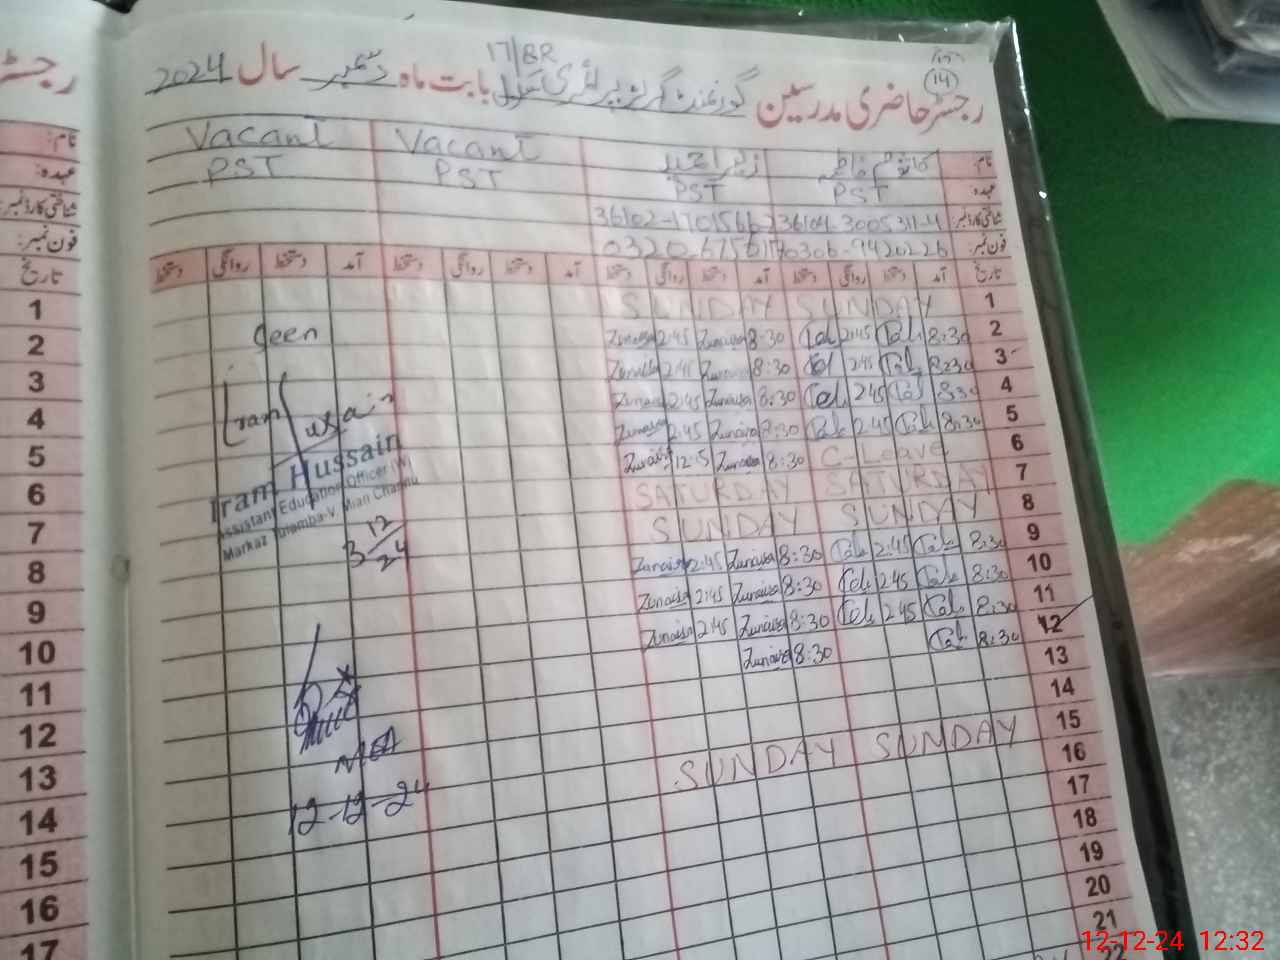 رجسٹر حاضری مدرسین گورنمنٹ گرلز پرائمری سکول 17/8R بابت ماہ دسمبر سال 2024
14
نام: Vacant Vacant
عہدہ: PST PST PST PST
شناختی کارڈ نمبر:
فون نمبر: 0306-9420226
تاریخ آمد دستخط روانگی دستخط آمد دستخط روانگی دستخط آمد دستخط روانگی دستخط آمد دستخط روانگی دستخط
1 SUNDAY SUNDAY
2 8:30 2:45 8:30 Zunaisa 2:45 Zunaisa
3 8:30 2:45 8:30 Zunaisa 2:45 Zunaisa
4 8:30 2:45 8:30 Zunaisa 2:45 Zunaisa
5 8:30 2:45 8:30 Zunaisa 2:45 Zunaisa
6 C-Leave 8:30 Zunaisa 12:5 Zunaisa
7 SATURDAY SATURDAY
8 SUNDAY SUNDAY
9 8:30 2:45 8:30 Zunaisa 2:45 Zunaisa
10 8:30 2:45 8:30 Zunaisa 2:45 Zunaisa
11 8:30 2:45 8:30 Zunaisa 2:45 Zunaisa
12 8:30 8:30 Zunaisa
13
14
15 SUNDAY SUNDAY
16
17
18
19
20
21
22
Seen
Iram Hussain
Iram Hussain
Assistant Education Officer (W)
Markaz Tulamba-V Mian Channu
3/12/24
MEA
12-12-24
رجسٹر
نام:
عہدہ:
شناختی کارڈ نمبر:
فون نمبر:
تاریخ
1
2
3
4
5
6
7
8
9
10
11
12
13
14
15
16
17
12-12-24 12:32